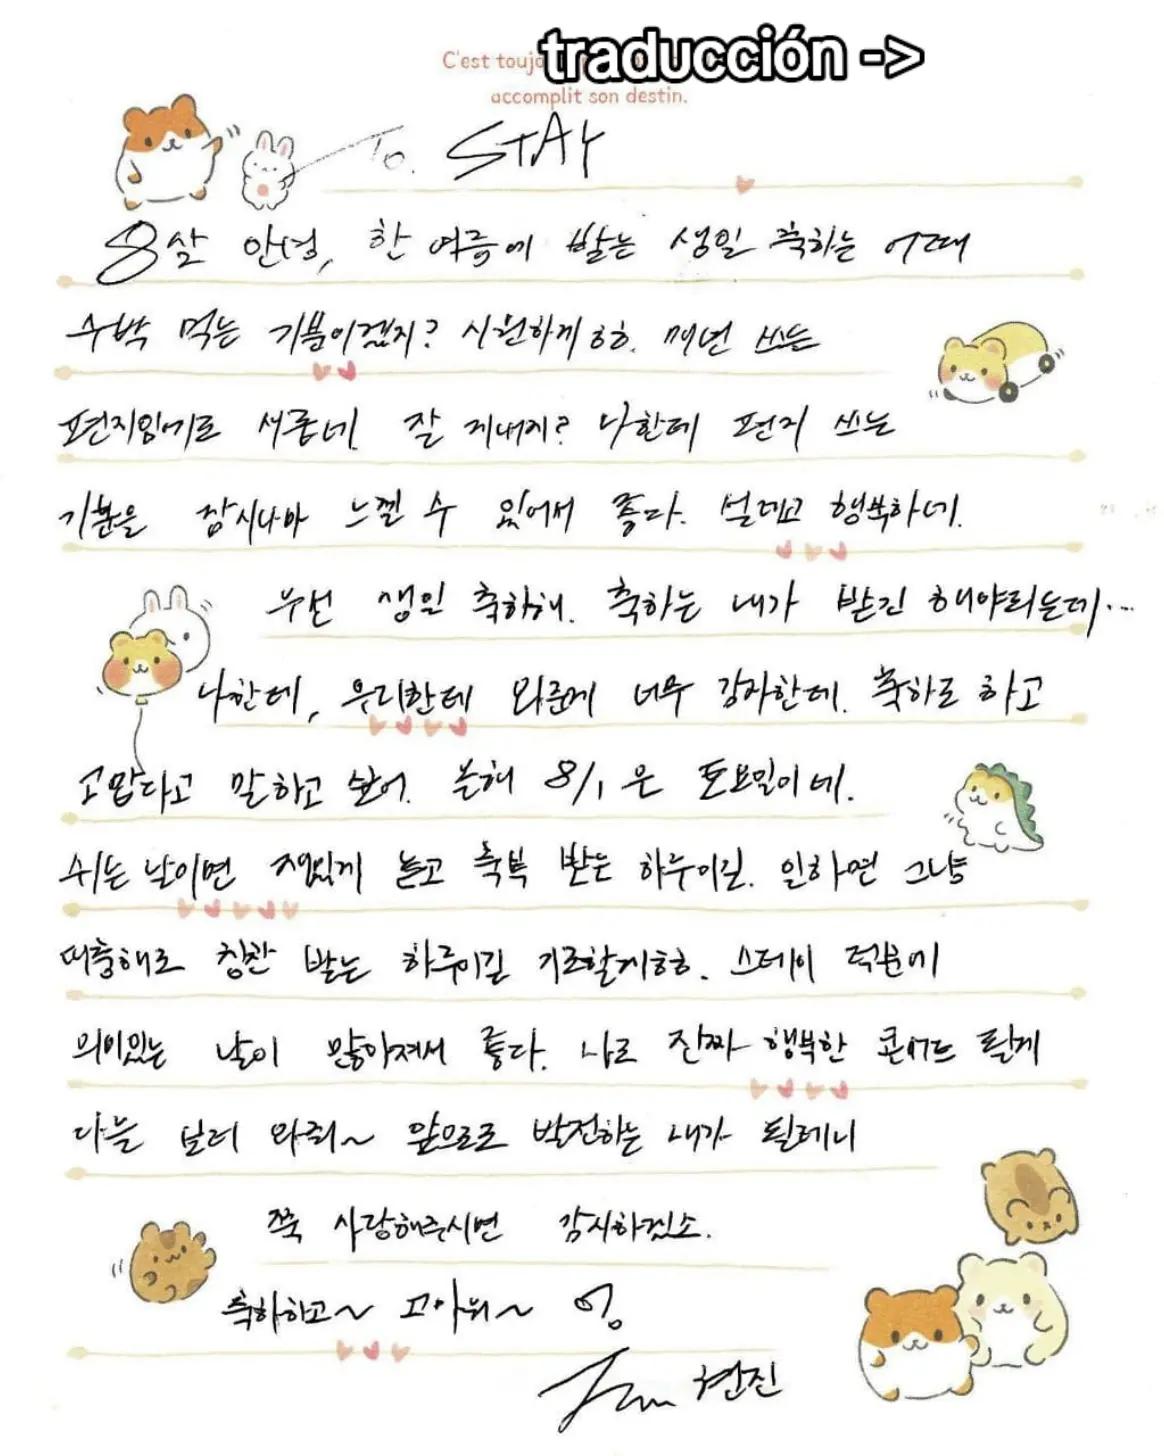 traducción ->
C'est touj
accomplit son destin.
To. STAY
8살 안녕, 한 여름에 받는 생일 축하는 어때
수박 먹는 기분이겠지? 시원하게 ㅎㅎ. 매년 쓰는
편지임에도 새롭네. 잘 지내지? 나한테 편지 쓰는
기분을 잠시나마 느낄 수 있어서 좋다. 설레고 행복하네.
우선 생일 축하해. 축하는 내가 받긴 해야되는데...
나한테, 우리한테 와준게 너무 감사한데. 축하도 하고
고맙다고 말하고 싶어. 올해 8/1 은 토요일이네.
쉬는 날이면 재밌게 놀고 축복 받는 하루이길. 일하면 그냥
대충해도 칭찬 받는 하루이길 기도할게ㅎㅎ. 스테이 덕분에
의미있는 날이 많아져서 좋다. 나도 진짜 행복한 콘서트 될게
다들 보러 와줘~ 앞으로도 발전하는 내가 될테니
쭉 사랑해주시면 감사하겠소.
축하하고~ 고마워~ 잉
현진